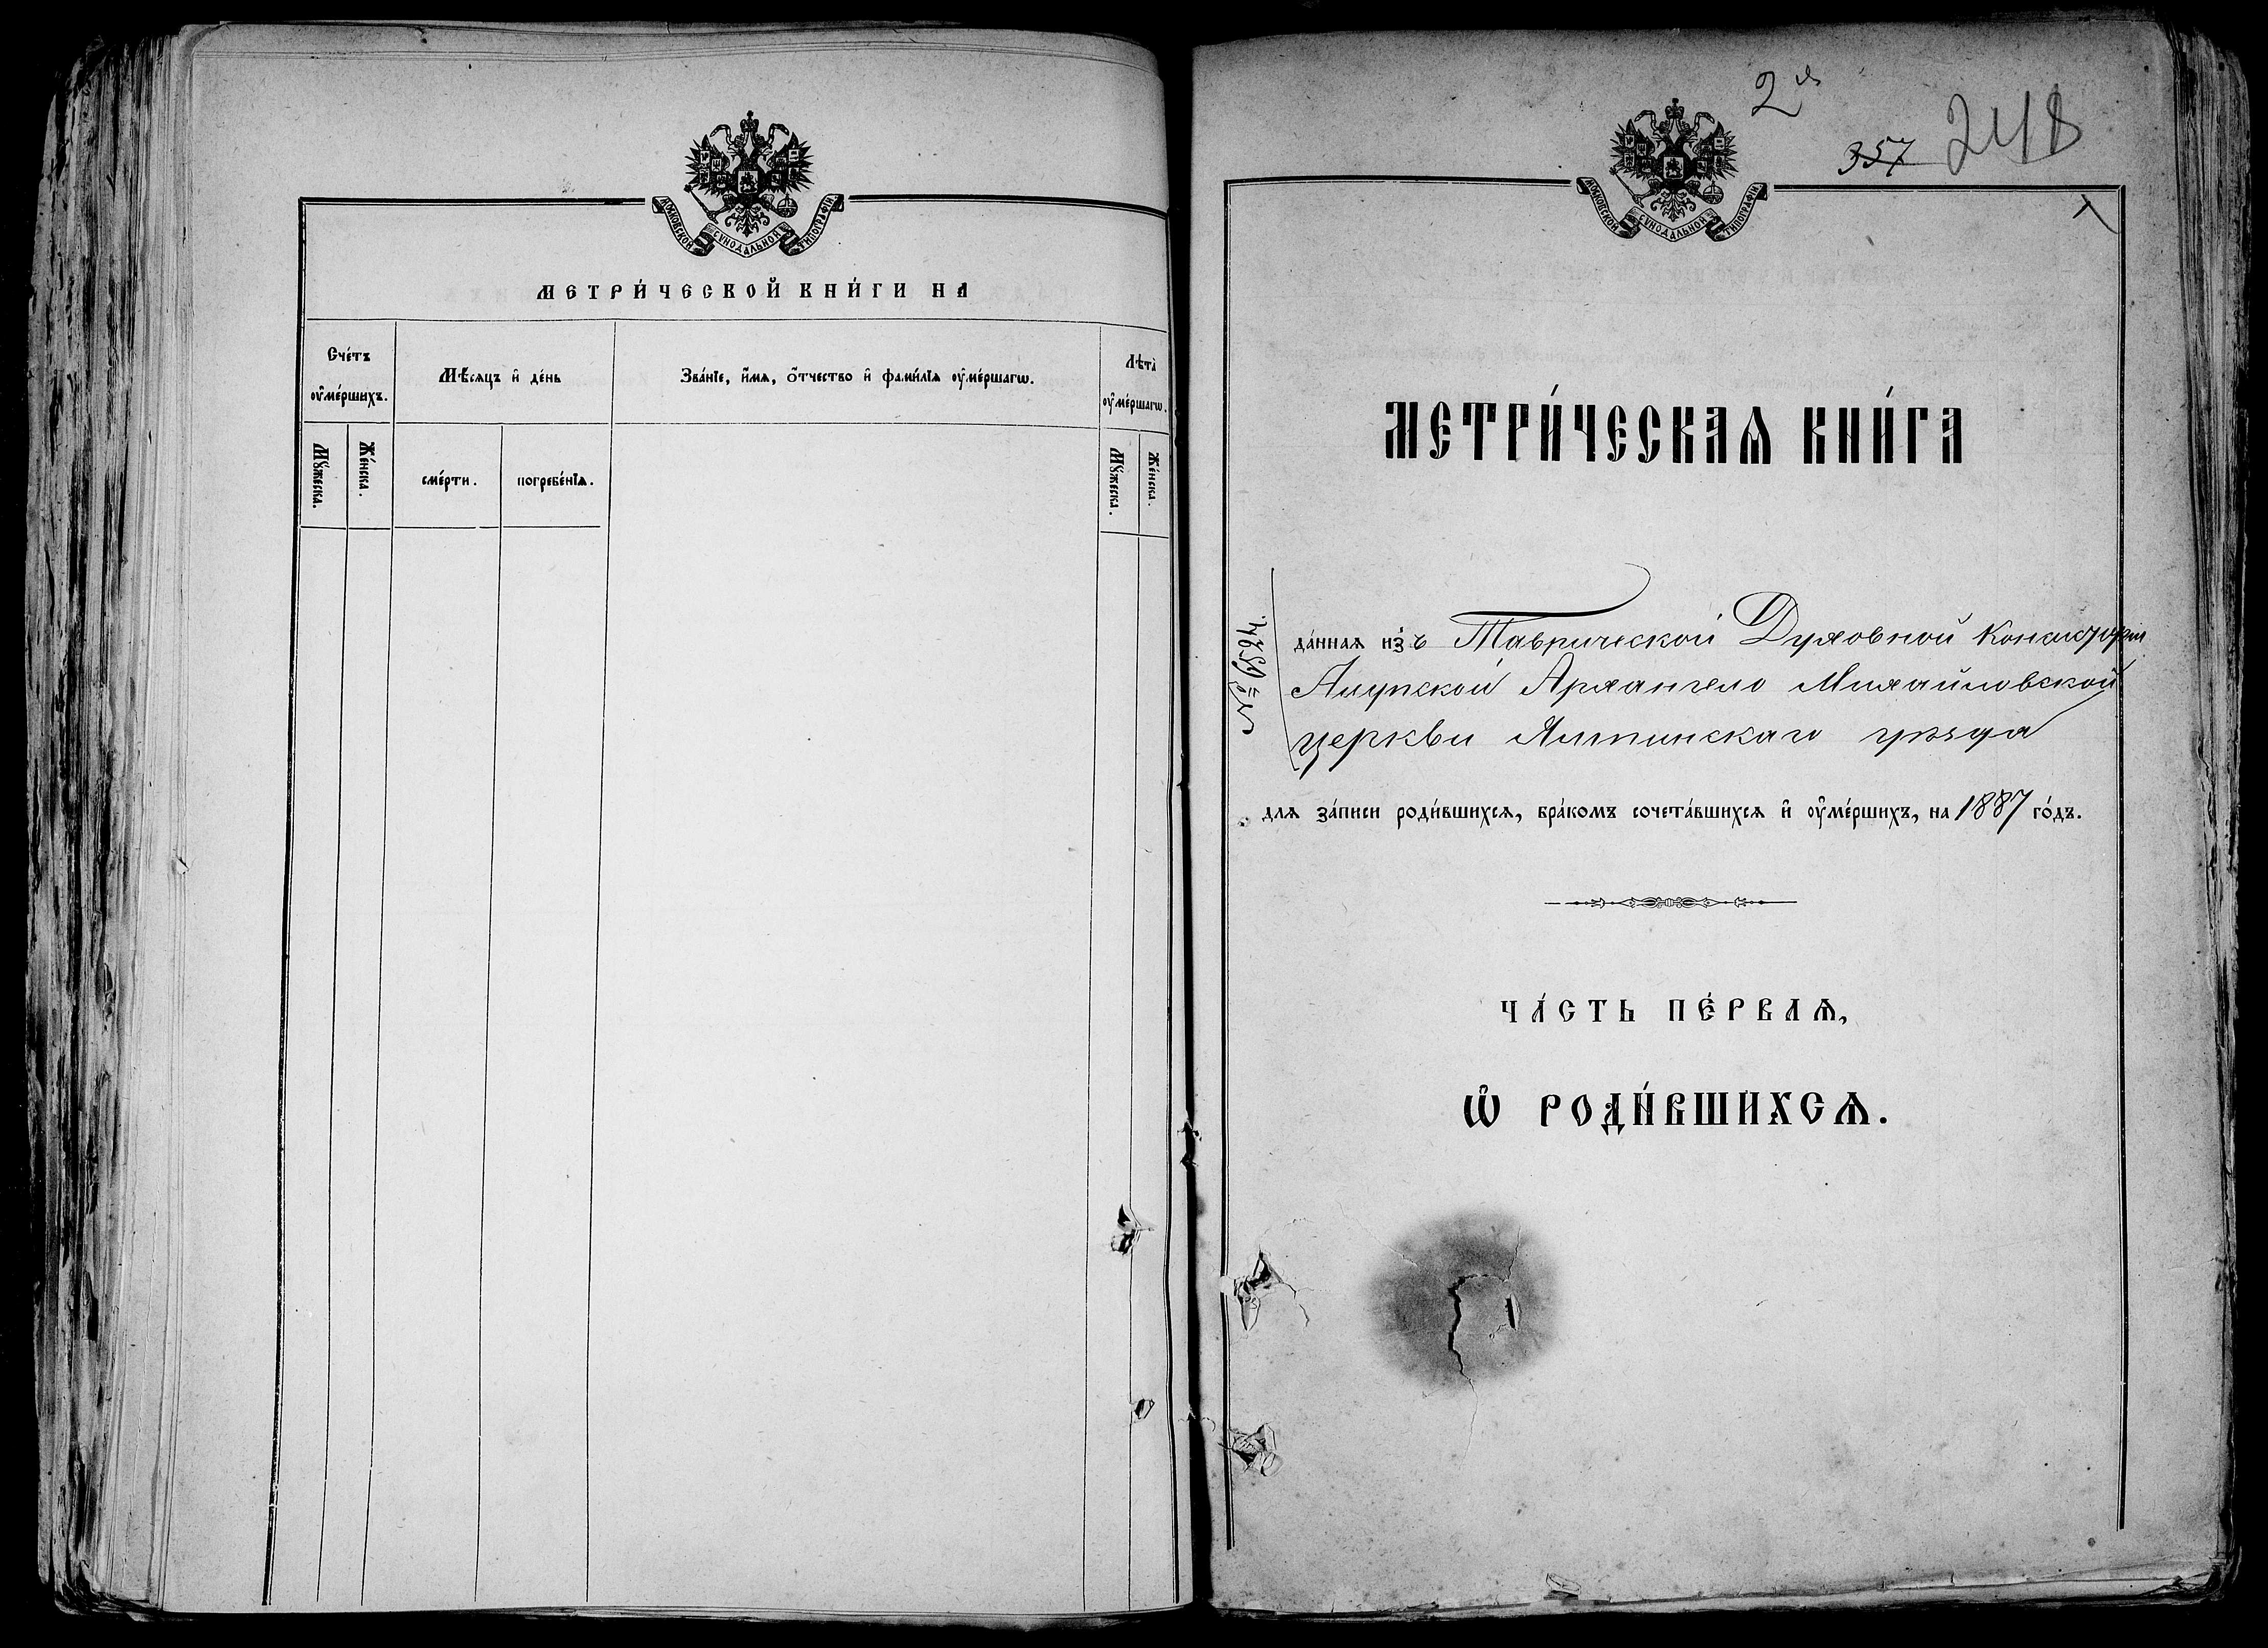 МОСКОВСКОЙ СУНОДАЛЬНОЙ ТИПОГРАФІИ
МЕТРИ́ЧЕСКОЙ КНИ́ГИ НА
Сче́тъ ᲂу҆ме́ршихъ.
Мѣ́сяцъ и҆ де́нь
Зва́нїе, и҆́мѧ, ѻ҆́тчество и҆ фами́лїѧ ᲂу҆ме́ршагѡ.
Лѣта̀ ᲂу҆ме́ршагѡ.
Мꙋ́жеска.
Же́нска.
сме́рти.
погребе́нїѧ.
Мꙋ́жеска.
Же́нска.
2я
357 248
МОСКОВСКОЙ СУНОДАЛЬНОЙ ТИПОГРАФІИ
МЕТРИ́ЧЕСКАѦ КНИ́ГА
да́ннаѧ и҆зъ Таврической Духовной Консисторіи
Алупской Архангело Михайловской
церкви Ялтинскаго уѣзда
длѧ за́писи роди́вшихсѧ, бра́комъ сочета́вшихсѧ и҆ ᲂу҆ме́ршихъ, на 1887 го́дъ.
ЧА́СТЬ ПЕ́РВАѦ,
Ѡ҆ РОДИ́ВШИХСѦ.